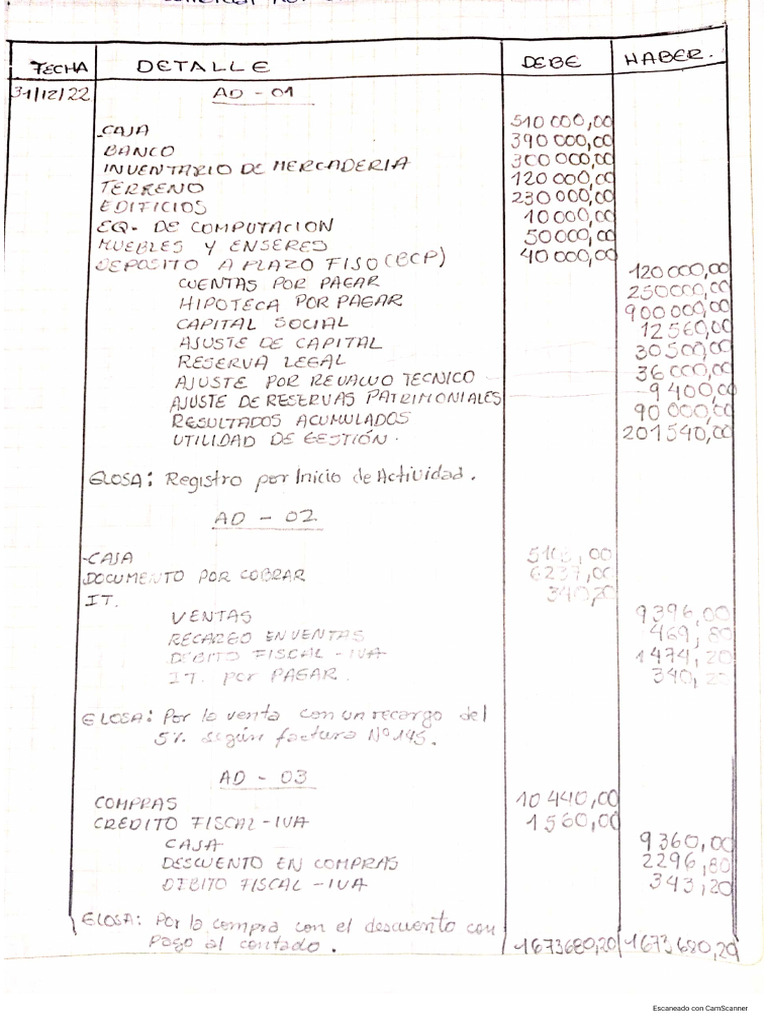 FECHA DETALLE DEBE HABER.
31/12/22 AD - 01
CAJA 510 000,00
BANCO 390 000,00
INVENTARIO DE MERCADERIA 300 000,00
TERRENO 120 000,00
EDIFICIOS 230 000,00
EQ. DE COMPUTACION 10 000,00
MUEBLES Y ENSERES 50 000,00
DEPOSITO A PLAZO FISO (BCP) 40 000,00
CUENTAS POR PAGAR 120 000,00
HIPOTECA POR PAGAR 250 000,00
CAPITAL SOCIAL 900 000,00
AJUSTE DE CAPITAL 12 560,00
RESERVA LEGAL 30 500,00
AJUSTE POR REVALUO TECNICO 36 000,00
AJUSTE DE RESERVAS PATRIMONIALES 9 400,00
RESULTADOS ACUMULADOS 90 000,00
UTILIDAD DE GESTIÓN. 201 540,00
GLOSA: Registro por Inicio de Actividad.
AD - 02
CAJA
DOCUMENTO POR COBRAR 6237,00
IT. 340,20
VENTAS 9396,00
RECARGO EN VENTAS 469,80
DEBITO FISCAL - IVA 1474,20
IT. por PAGAR. 340,20
GLOSA: Por la venta con un recargo del
5% según factura Nº 145.
AD - 03
COMPRAS 10 440,00
CREDITO FISCAL - IVA 1 560,00
CAJA 9360,00
DESCUENTO EN COMPRAS 2296,80
DEBITO FISCAL - IVA 343,20
GLOSA: Por la compra con el descuento con
Pago al contado. 1673680,20 1673680,20
Escaneado con CamScanner